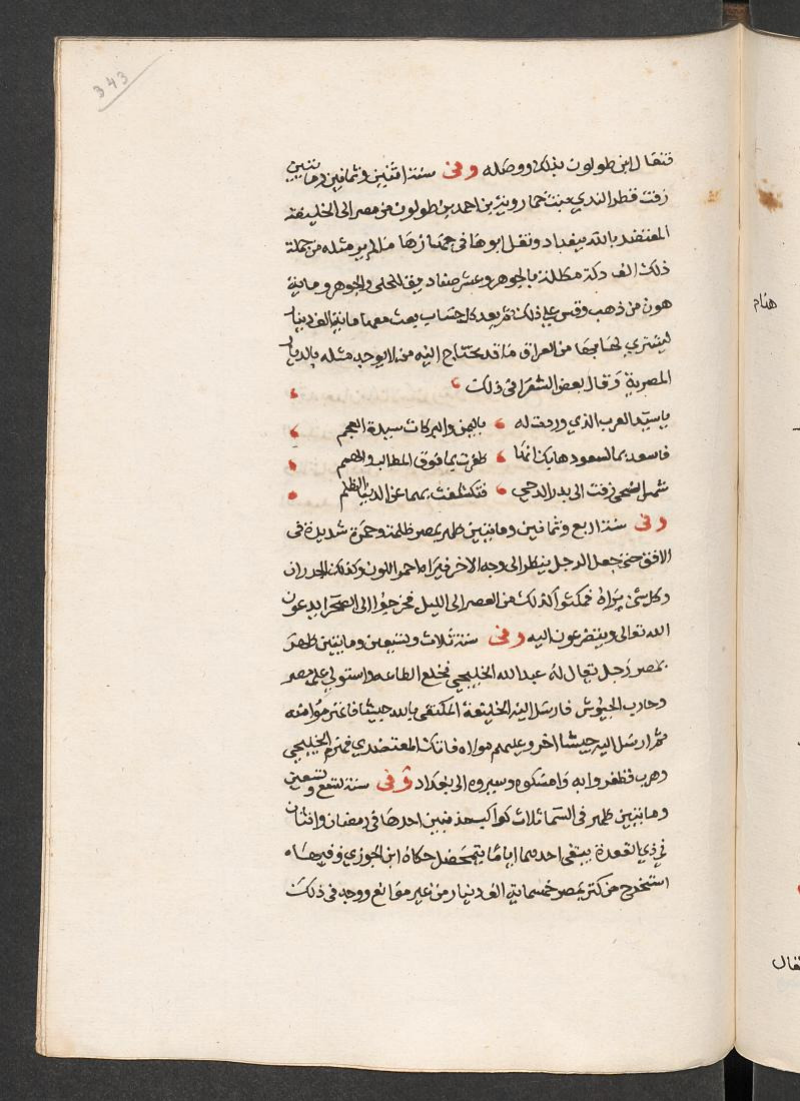 343
فتفال ابن طولون بذلك ووصله وفى سنة اثنين وثمانين ومائتين
زفت قطر الندي بنت خمارويه بن احمد بن طولون من مصر الى الخليفة
المعتضد بالله ببغداد ونقل ابوها فى جهازها مالم ير مثله من جملة
ذلك الف دكة مكللة بالجوهر وعشر صناديق الحلى والجوهر وماية
هون من ذهب وقس علي ذلك ثم بعد كل حساب بعث معها ماية الف دينار
ليشتري لها بها من العراق ما قد تحتاج اليه من لا يوجد مثله بالديار
المصرية وقال بعض الشعرا فى ذلك
ياسيد العرب الذي وردت له باليمن والبركات سيدة العجم
فاسعد بها كسعودها بك انها ظفرت بما فوق المطالب والهمم
شمس الضحى زفت الى بدر الدجى فتكشفت بهما عن الدنيا الظلم
وفى سنة اربع وثمانين ومايتين ظهر بمصر ظلمة وحمرة شديدة فى
الافق حتى جعل الرجل ينظر الى وجه الاخر فيراه احمر اللون وكذلك الجدران
وكل شئ يراه فمكثوا كذلك من العصر الى الليل فخرجوا الى الصحرا يدعون
الله تعالى ويتضرعون اليه وفى سنة ثلاث وتسعين ومايتين ظهر
بمصر رجل يقال له عبد الله الخليجي فخلع الطاعة واستولي علي مصر
وحارب الجيوش فارسل اليه الخليفة المكتفى بالله جيشا فاغتر موامنه
ثم ارسل اليه جيشا اخر وعليهم مولاه فاتك المعتضدي فهزم الخليجي
وهرب فظفروا به وامسكوه وسيروه الى بغداد وفى سنة تسع وتسعين
ومايتين ظهر فى السما ثلاث كواكب مذنبين احدها فى رمضان واثنان
في ذي القعدة يبقى احدهما اياما يضمحل حكاه ابن الجوزي وفيها
استخرج من كنز بمصر خمسماية الف دينار من غير موانع ووجد فى ذلك
هنام